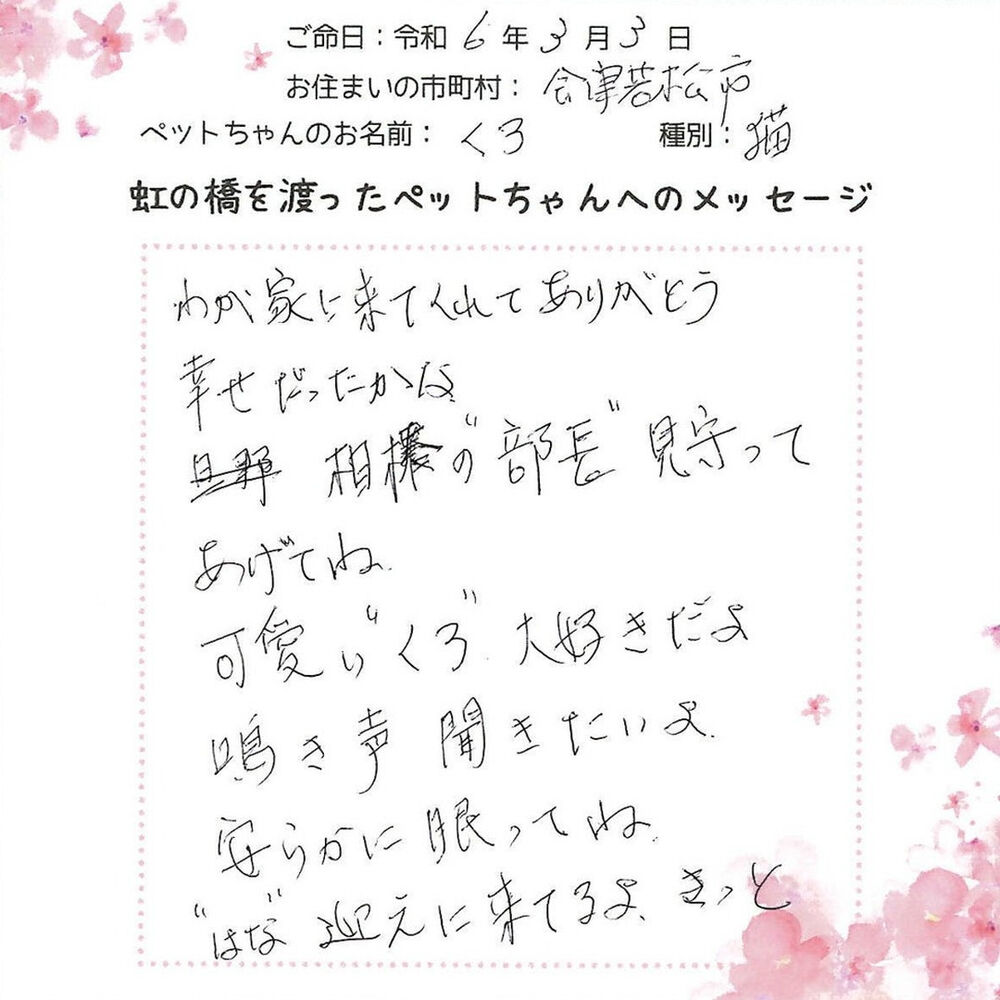 ご命日：令和 6 年 3 月 3 日
お住まいの市町村： 会津若松市
ペットちゃんのお名前： くろ 種別： 猫
虹の橋を渡ったペットちゃんへのメッセージ
わが家に来てくれてありがとう
幸せだったかな
旦那 相棒の“部長”見守って
あげてね
可愛い“くろ”大好きだよ
鳴き声 聞きたいよ
安らかに眠ってね
“はな”迎えに来てるよ、きっと